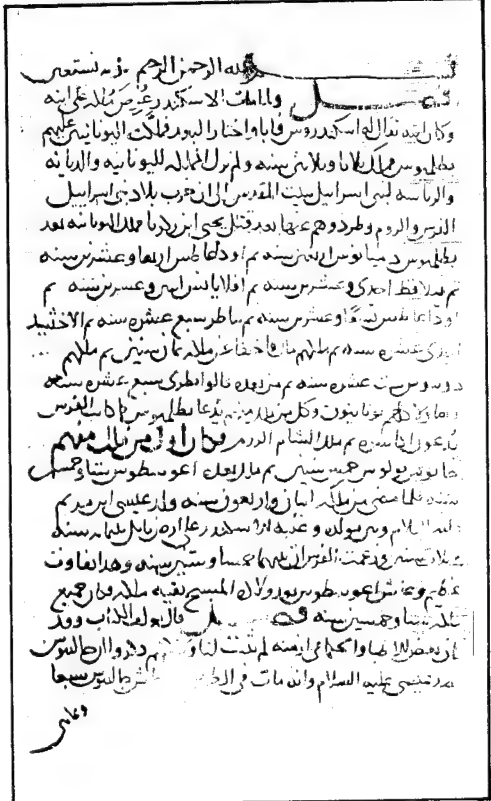 بسم الله الرحمن الرحيم وبه نستعين
فصل ولما مات الاسكندر عرض ملكه على ابنه
وكان ابنه يقال له اسكندروس فابا واختار التعبد فملكت اليونانيين عليهم
بطلميوس فملك ثلاثا وثلاثين سنه ولم تزل المملكه لليونانيه والديانه
والرياسه لبني اسرائيل ببيت المقدس الى ان خرب بلاد بني اسراييل
الفرس والروم وطردوهم عنها بعد قتل يحيى ابن زكريا ملك اليونانيه بعد
بطلميوس دميانوس اربعين سنه ثم اوداعاطس اربعا وعشرين سنه
ثم فيلافط احدى وعشرين سنه ثم افلايانس اثنين وعشرين سنه ثم
اوداعاطس تسعا وعشرين سنه ثم ساطر سبع عشره سنه ثم الاخشيد
احدى عشره سنه ثم ملكهم ملك اختفا عن ملكه ثمان سنين ثم ملكهم
دونوس ست عشره سنه ثم من بعده قالوا بطرى سبع عشره سنه
هم يونانيون وكل من ملك منهم يدعا بطلميوس كما كانت الفرس
يدعون اكاسره ثم ملك الشام الروم فكان اول من ملك منهم
جايوس يولوس خمس سنين ثم ملك بعده اغوسطوس ستا وخمسين
سنه فلما مضى من ملكه اثنان واربعون سنه ولد عيسى ابن مريم
عليه السلام وبين مولده وغلبه الاسكندر على ارض بابل ثلثمايه سنه
وثلاث سنين وزعمت الفرس ان بينهما خمسا وستين سنه وهذا تفاوت
عظيم وعاش اغوسطوس بعد ولاد المسيح بقيه ملكه فكان جميع
ملكه ستا وخمسين سنه فصل قال مولف الكتاب وقد
كان بعض الاطبا والحكما في ازمنه لم تثبت لنا ذكروا ان جالينوس
بعد عيسى عليه السلام وانه مات في عاش جالينوس سبعا
وثمانين